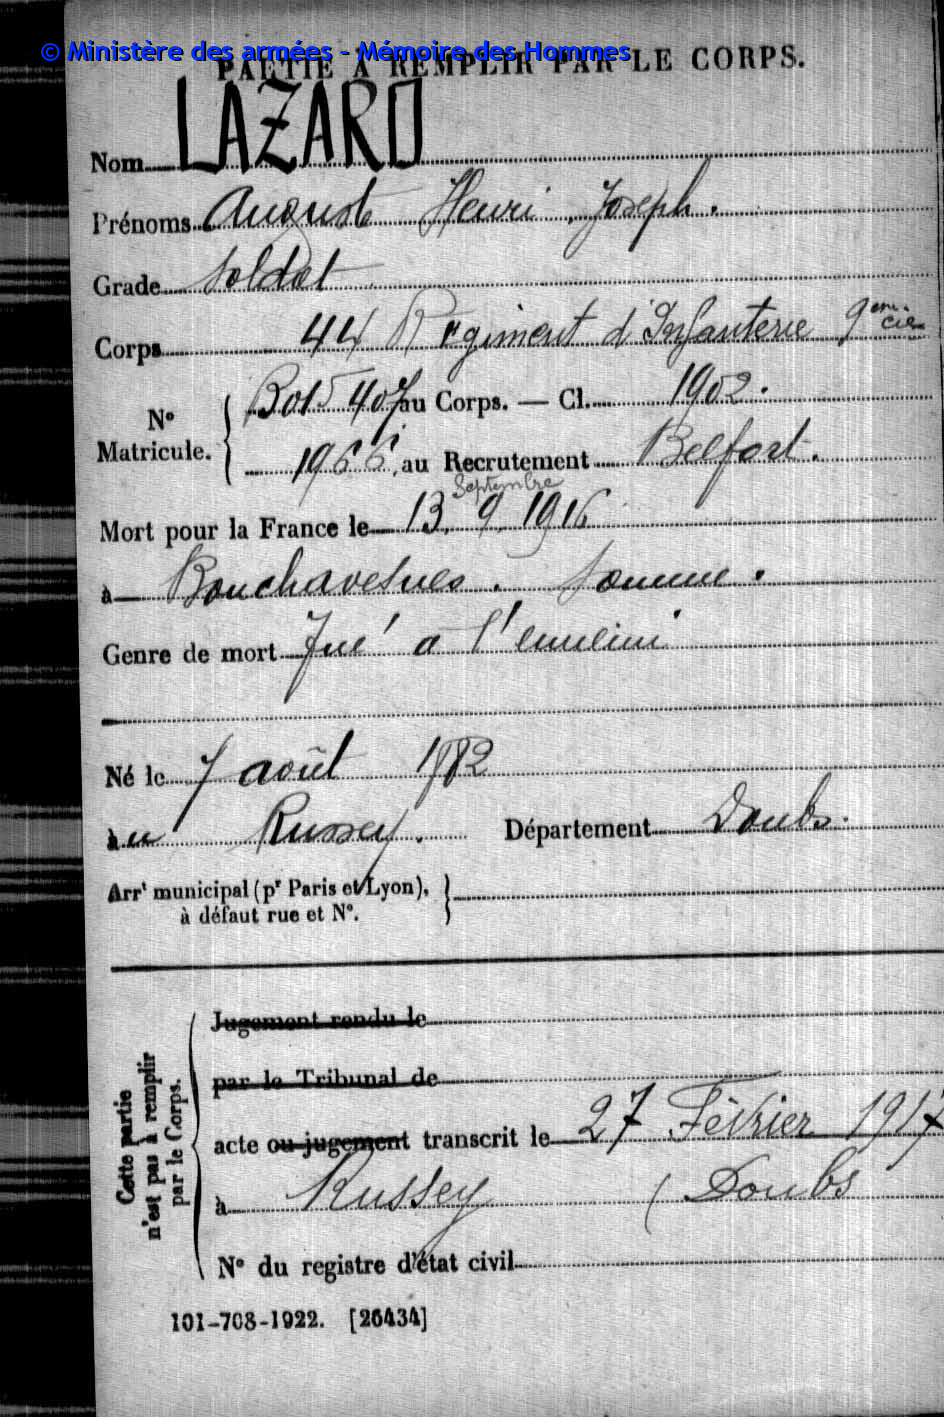 © Ministère des armées - Mémoire des Hommes
PARTIE À REMPLIR PAR LE CORPS.
Nom LAZARD
Prénoms Auguste Henri Joseph.
Grade Soldat
Corps 44 Régiment d'Infanterie 9ème Cie
N° Matricule. { Bo15407 au Corps. — Cl. 1902.
1966. au Recrutement Belfort.
Septembre
Mort pour la France le 13. 9. 1916
à Bouchavesnes. Somme.
Genre de mort Tué à l'ennemi
Né le 7 août 1882
à u Russey. Département Doubs.
Arrt municipal (pr Paris et Lyon),
à défaut rue et N°.
Cette partie
n'est pas à remplir
par le Corps.
Jugement rendu le
par le Tribunal de
acte ou jugement transcrit le 27 Février 1917
à Russey (Doubs
N° du registre d'état civil
101-708-1922. [26434]